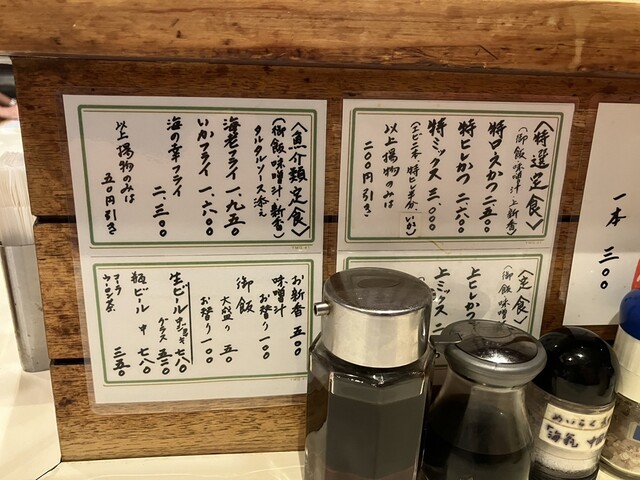 〈特選定食〉
(御飯、味噌汁、上新香)
特ロースかつ 二、六五〇
特ヒレかつ 二、六〇〇
特ミックス 三、〇〇〇
(エビ二本、特ヒレ半分、いか)
以上揚物のみは
二〇〇円引き
〈魚介類定食〉
(御飯、味噌汁、新香)
タルタルソース添え
海老フライ 一、九五〇
いかフライ 一、六〇〇
海の幸フライ 二、三〇〇
以上揚物のみは
五〇円引き
一本 三〇〇
〈定食〉
(御飯、味噌
上ヒレかつ
上ミックス
お新香 五〇〇
味噌汁
お替り 一〇〇
御飯
大盛り 五〇
お替り 一〇〇
生ビール 中ジョッキ 七八〇
グラス 五二〇
瓶ビール 中 七八〇
コーラ
ウーロン茶 三五〇